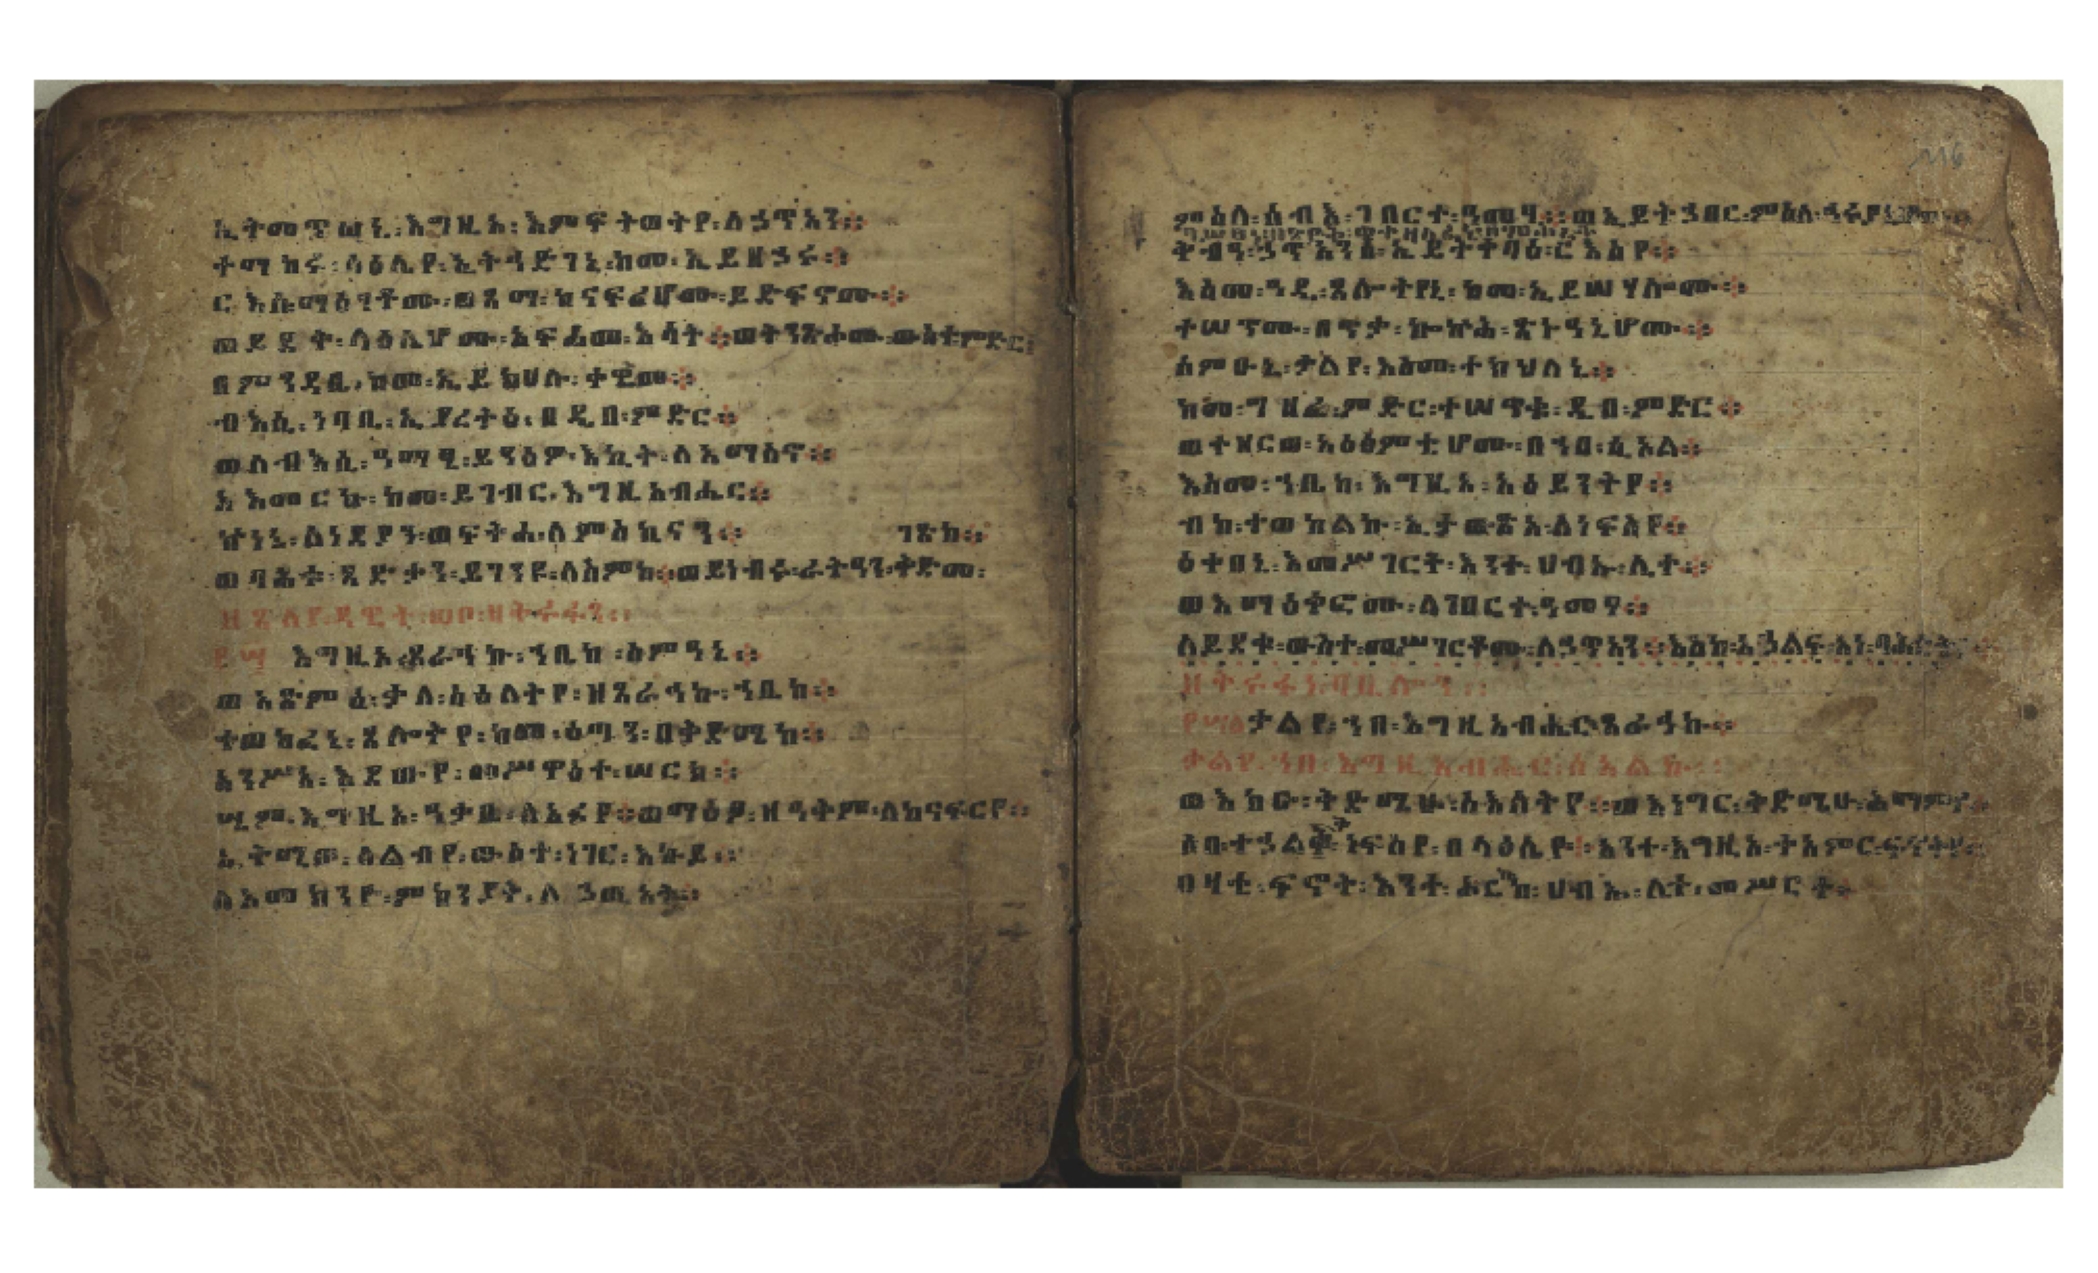 ኢትመጥወኒ፡እግዚአ፡እምፍትወትየ፡ለኃጥአን።
ተማከሩ፡ላዕሌየ፡ኢትኅድገኒ፡ከመ፡ኢይዘኃሩ።
ርእሰ፡ማዕገቶሙ፡ወጻማ፡ከናፍሪሆሙ፡ይድፍኖሙ።
ወይደቅ፡ላዕሌሆሙ፡አፍሐመ፡እሳት።ወትንጽሖሙ፡ውስተ፡ምድር፡
በምንዳቤ፡ከመ፡ኢይክሀሉ፡ቀዊመ።
ብእሲ፡ነባቢ፡ኢያረትዕ፡በዲበ፡ምድር።
ወለብእሲ፡ዓማፂ፡ይንዕዎ፡እኪት፡ለአማስኖ።
አእመርኩ፡ከመ፡ይገብር፡እግዚአብሔር።
ኵነኔ፡ለነዳያን፡ወፍትሐ፡ለምስኪናን። ገጽከ።
ወባሕቱ፡ጻድቃን፡ይገንዩ፡ለስምከ።ወይነብሩ፡ራትዓን፡ቅድመ፡
ዘጸለየ፡ዳዊት፡
፻፵ እግዚአ፡ጸራኅኩ፡ኀቤከ፡ስምዓኒ።
ወአጽምዕ፡ቃለ፡ስዕለትየ፡ዘጸራኅኩ፡ኀቤከ።
ተወከፈኒ፡ጸሎትየ፡ከመ፡ዕጣን፡በቅድሜከ።
አንሥአ፡እደውየ፡መሥዋዕተ፡ሠርክ።
ሢም፡እግዚአ፡ዓቃቤ፡ለአፉየ።ወማዕፆ፡ዘዓቅም፡ለከናፍርየ።
ኢትሚጦ፡ለልብየ፡ውስተ፡ነገር፡እኩይ።
ለአመክንዮ፡ምክንያት፡ለኃጢአት።
ምስለ፡ሰብእ፡ገበርተ፡ዓመፃ።ወኢይትኃበር፡ምስለ፡ኅሩያኒሆሙ።
ቅብዓ፡ኃጥአንሰ፡ኢይትቀባዕ፡ርእስየ።
እስመ፡ዓዲ፡ጸሎትየኒ፡ከመ፡ኢይሠሃሎሙ።
ተሠጥሙ፡በጥቃ፡ኰኵሕ፡ጽኑዓኒሆሙ።
ስምዑኒ፡ቃልየ፡እስመ፡ተክህለኒ።
ከመ፡ግዘፈ፡ምድር፡ተሠጥቁ፡ዲበ፡ምድር።
ወተዘርወ፡አዕፅምቲሆሙ፡በኀበ፡ሲኦል።
እስመ፡ኀቤከ፡እግዚአ፡አዕይንትየ።
ብከ፡ተወከልኩ፡ኢታውጽአ፡ለነፍስየ።
ዕቀበኒ፡እመሥገርት፡እንተ፡ኀብኡ፡ሊተ።
ወእማዕቀፎሙ፡ለገበርተ፡ዓመፃ።
ለይደቁ፡ውስተ፡መሥገርቶሙ፡ለኃጥአን።እስከ፡አኃልፍ፡አነ፡ባሕቲትየ
፻፵፩ ቃልየ፡ኀበ፡እግዚአብሔር፡ጸራኅኩ።
ቃልየ፡ኀበ፡እግዚአብሔር፡ሰአልኩ።
ወእክዑ፡ቅድሜሁ፡ስእለትየ።ወእነግር፡ቅድሜሁ፡ሕማምየ።
ሶበ፡ተኃልቅ፡ነፍስየ፡በላዕሌየ።አንተ፡እግዚአ፡ተአምር፡ፍኖትየ።
በዛቲ፡ፍኖት፡እንተ፡ሖርኩ፡ኀብኡ፡ሊተ፡መሥገርተ።